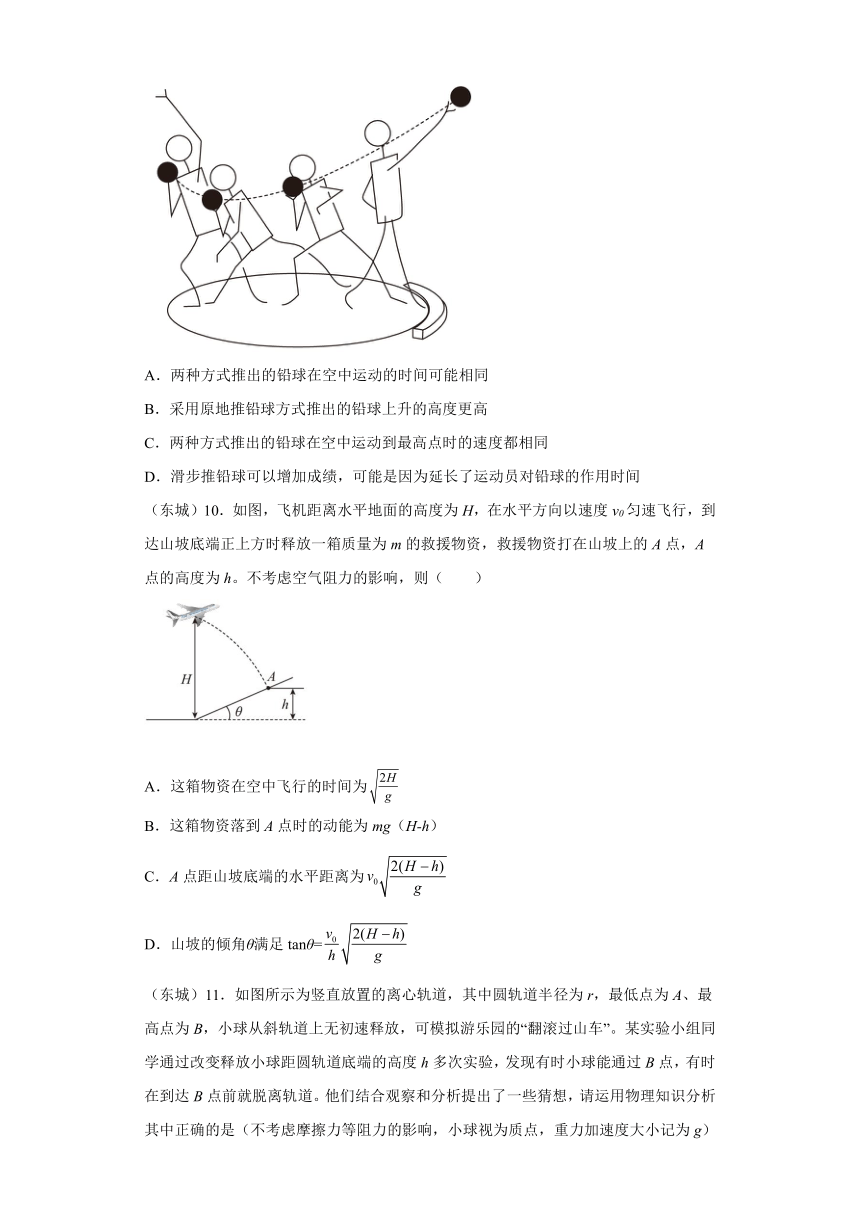 A．两种方式推出的铅球在空中运动的时间可能相同
B．采用原地推铅球方式推出的铅球上升的高度更高
C．两种方式推出的铅球在空中运动到最高点时的速度都相同
D．滑步推铅球可以增加成绩，可能是因为延长了运动员对铅球的作用时间
（东城）10．如图，飞机距离水平地面的高度为H，在水平方向以速度v₀匀速飞行，到
达山坡底端正上方时释放一箱质量为m的救援物资，救援物资打在山坡上的A点，A
点的高度为h。不考虑空气阻力的影响，则（　　）
H
A
θ
h
A．这箱物资在空中飞行的时间为√(2H/g)
B．这箱物资落到A点时的动能为mg（H-h）
C．A点距山坡底端的水平距离为v₀√(2(H－h)/g)
D．山坡的倾角θ满足tanθ=v₀/h √(2(H－h)/g)
（东城）11．如图所示为竖直放置的离心轨道，其中圆轨道半径为r，最低点为A、最
高点为B，小球从斜轨道上无初速释放，可模拟游乐园的“翻滚过山车”。某实验小组同
学通过改变释放小球距圆轨道底端的高度h多次实验，发现有时小球能通过B点，有时
在到达B点前就脱离轨道。他们结合观察和分析提出了一些猜想，请运用物理知识分析
其中正确的是（不考虑摩擦力等阻力的影响，小球视为质点，重力加速度大小记为g）